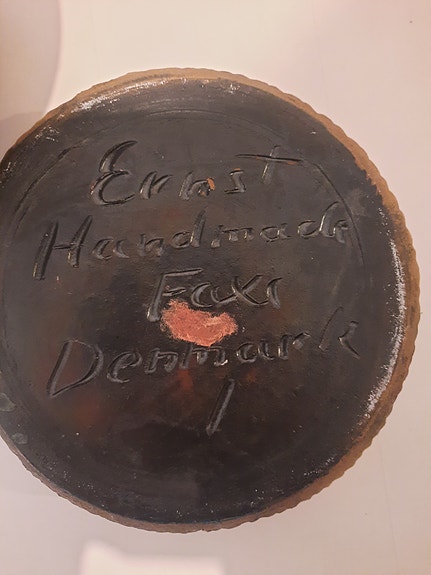 Ernst
Handmade
Faxe
Denmark
1